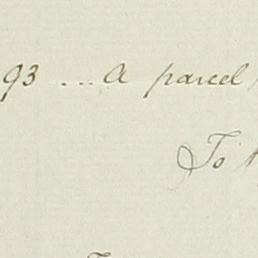 93 ... A parcel
To